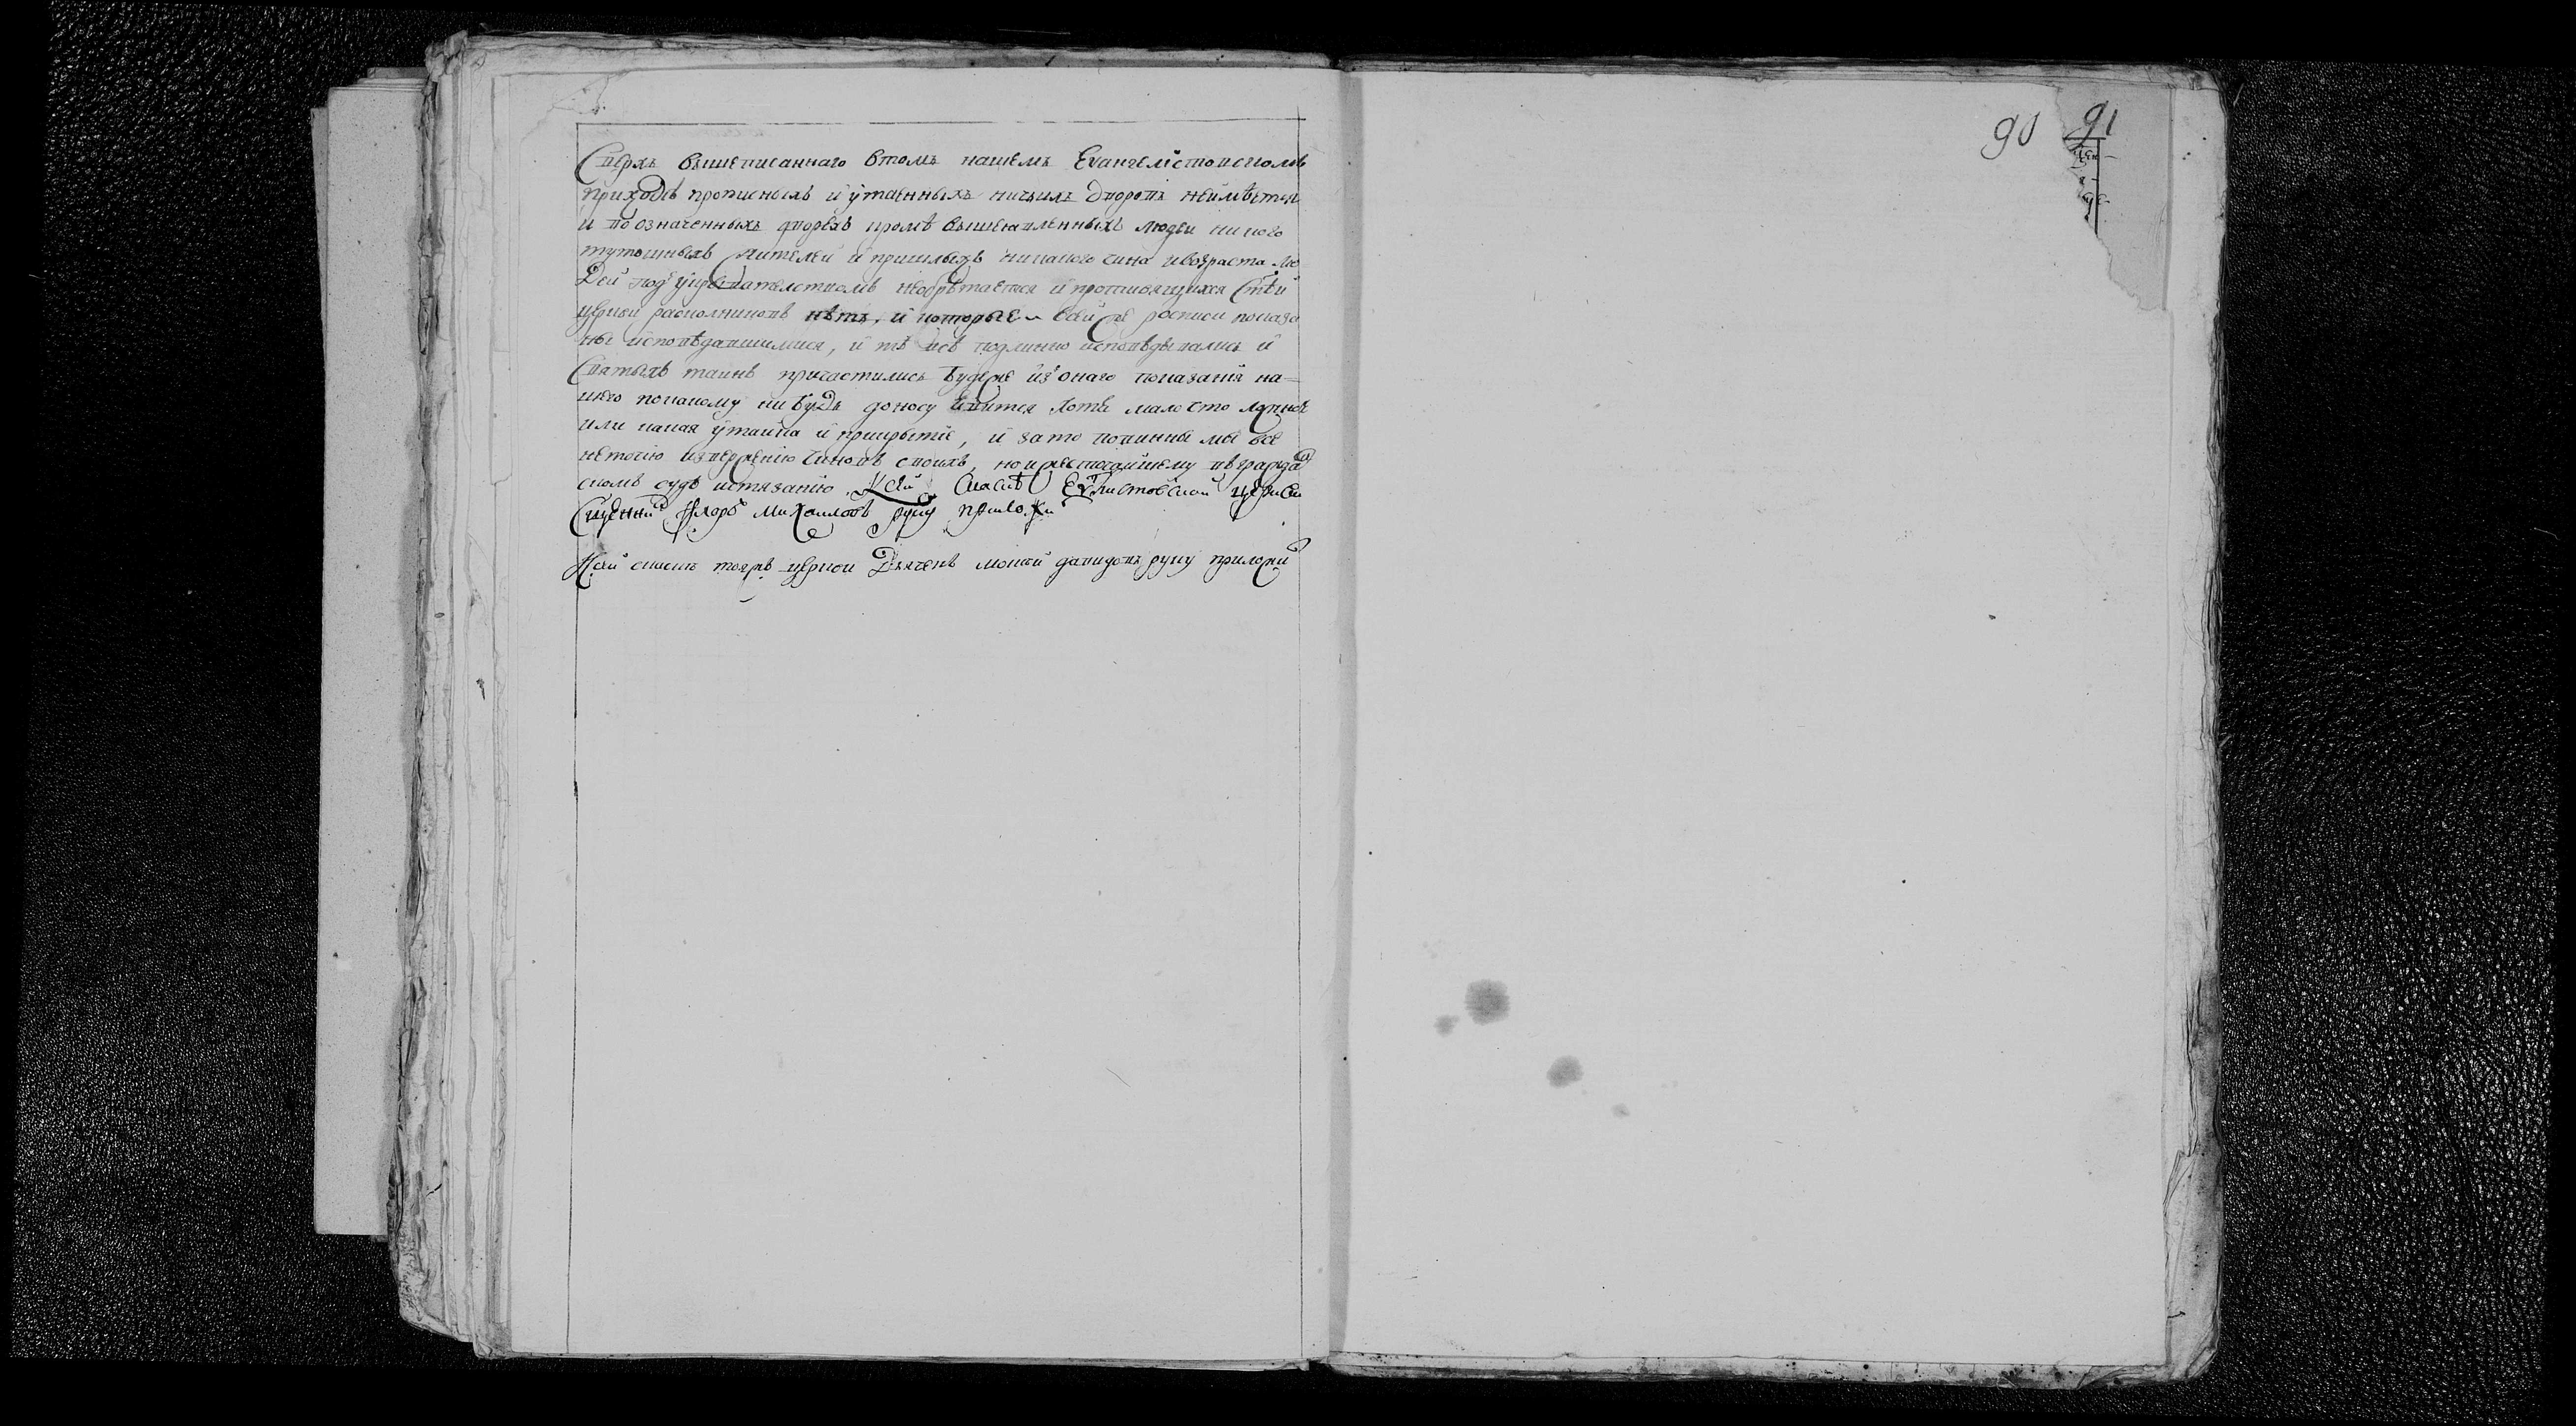 Сверхъ вышеписаннаго втомъ нашемъ Еѵангелистовскомъ
приходѣ прописныхъ и утаенныхъ ничьихъ дворовъ неимѣетца
и во означенныхъ дворехъ кромѣ вышеявленныхъ людеи никого
тутошныхъ жителеи и пришлыхъ никакого чина ивозраста лю
дей под укрывателствомъ необрѣтается и противящихся стѣи
церкви расколниковъ нѣтъ, и которые всей же росписи показа
ны исповѣдавшимися, и тѣ всѣ подлинно исповѣдывались и
святыхъ таинъ причастились будеже из онаго показанія на=
шего покакому нибудь доносу явится хотя мало что ложное
или какая утайка и прикрытіе, и зато повинны мы все
неточію изверженію чиновъ своихъ, но и жесточайшему въ гражда
скомъ судѣ истязанію. Ксеи скаскѣ Еѵлистовской церкви
Сщенник Флоръ Михаиловъ руку приложи
Ксей скаске тояжъ церкви дьяченъ мокей давидовъ руку приложи
90 91